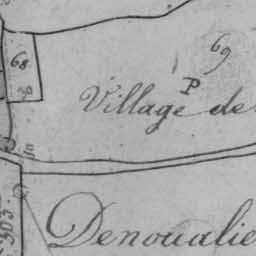 69
68
P
Village de
Denoualie
303.